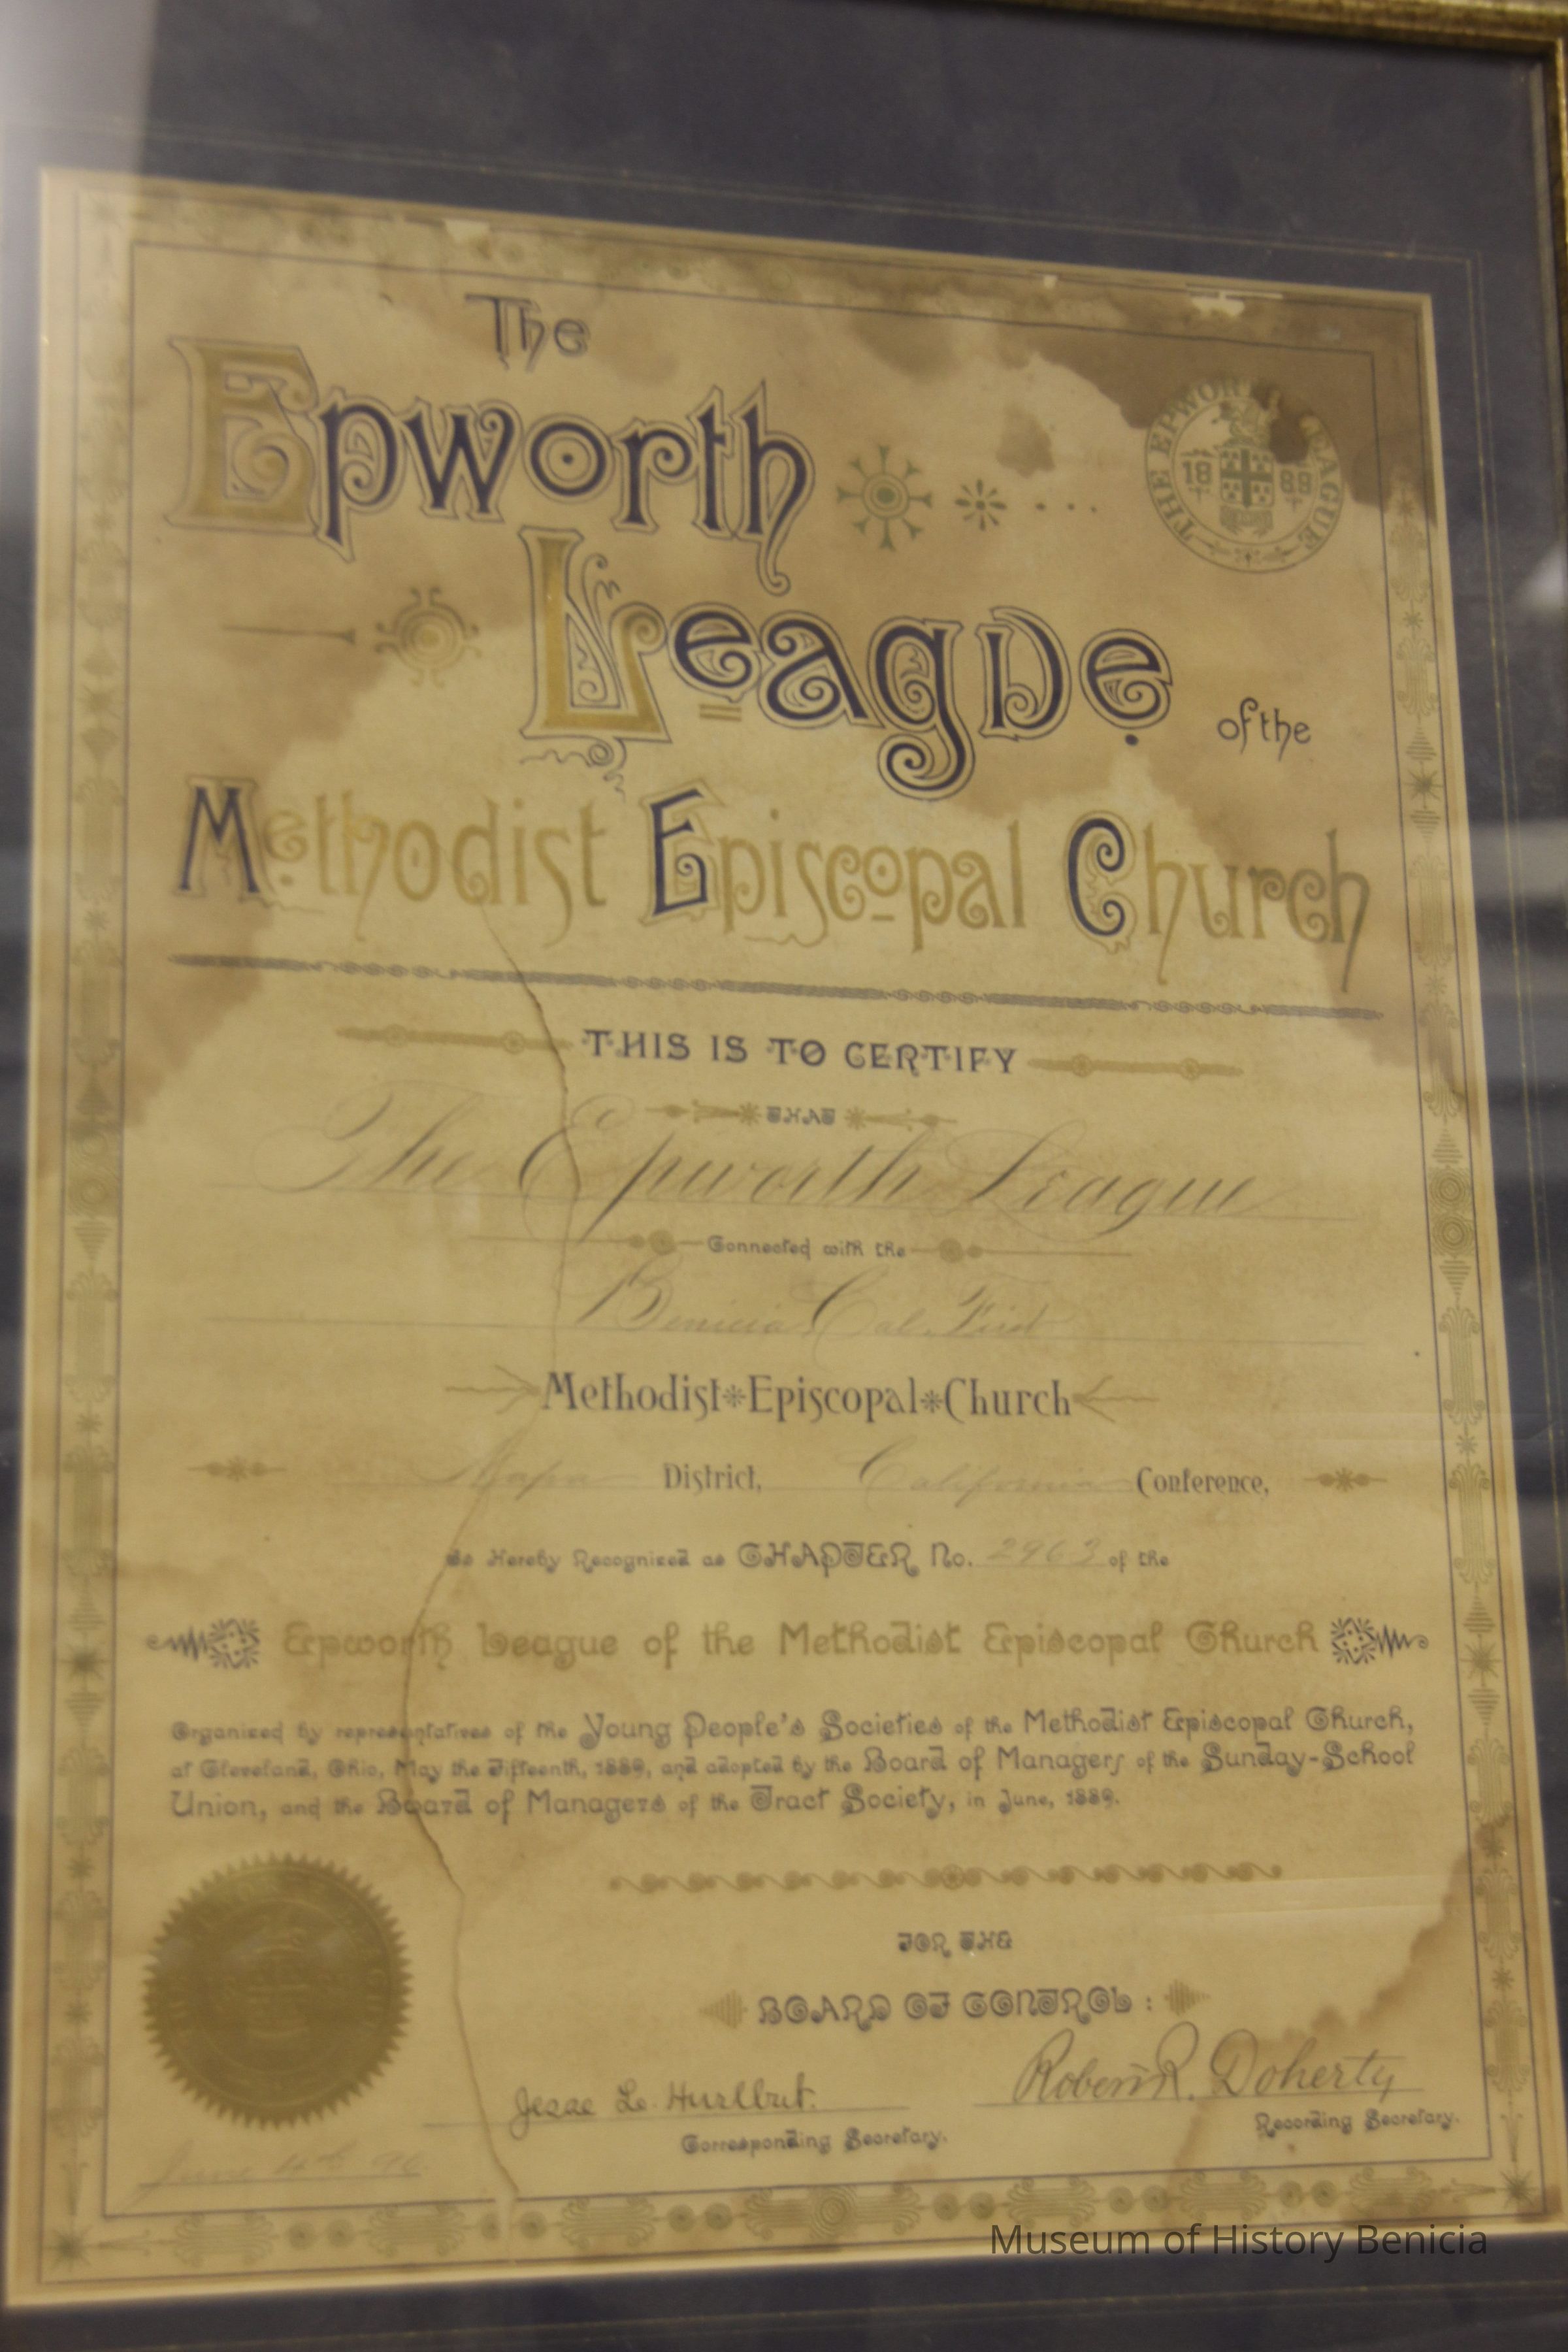 The
Epworth
League
of the
THE EPWORTH LEAGUE
18 89
Methodist Episcopal Church
THIS IS TO CERTIFY
THAT
The Epworth League
Connected with the
Benicia Cal. First
Methodist Episcopal Church
Napa District, California Conference,
Is Hereby Recognized as CHAPTER No. 2963 of the
Epworth League of the Methodist Episcopal Church
Organized by representatives of the Young People's Societies of the Methodist Episcopal Church,
at Cleveland, Ohio, May the Fifteenth, 1889, and adopted by the Board of Managers of the Sunday-School
Union, and the Board of Managers of the Tract Society, in June, 1889.
FOR THE
BOARD OF CONTROL:
Jesse L. Hurlbut.
Corresponding Secretary.
Robert R. Doherty
Recording Secretary.
June 4th 90
Museum of History Benicia